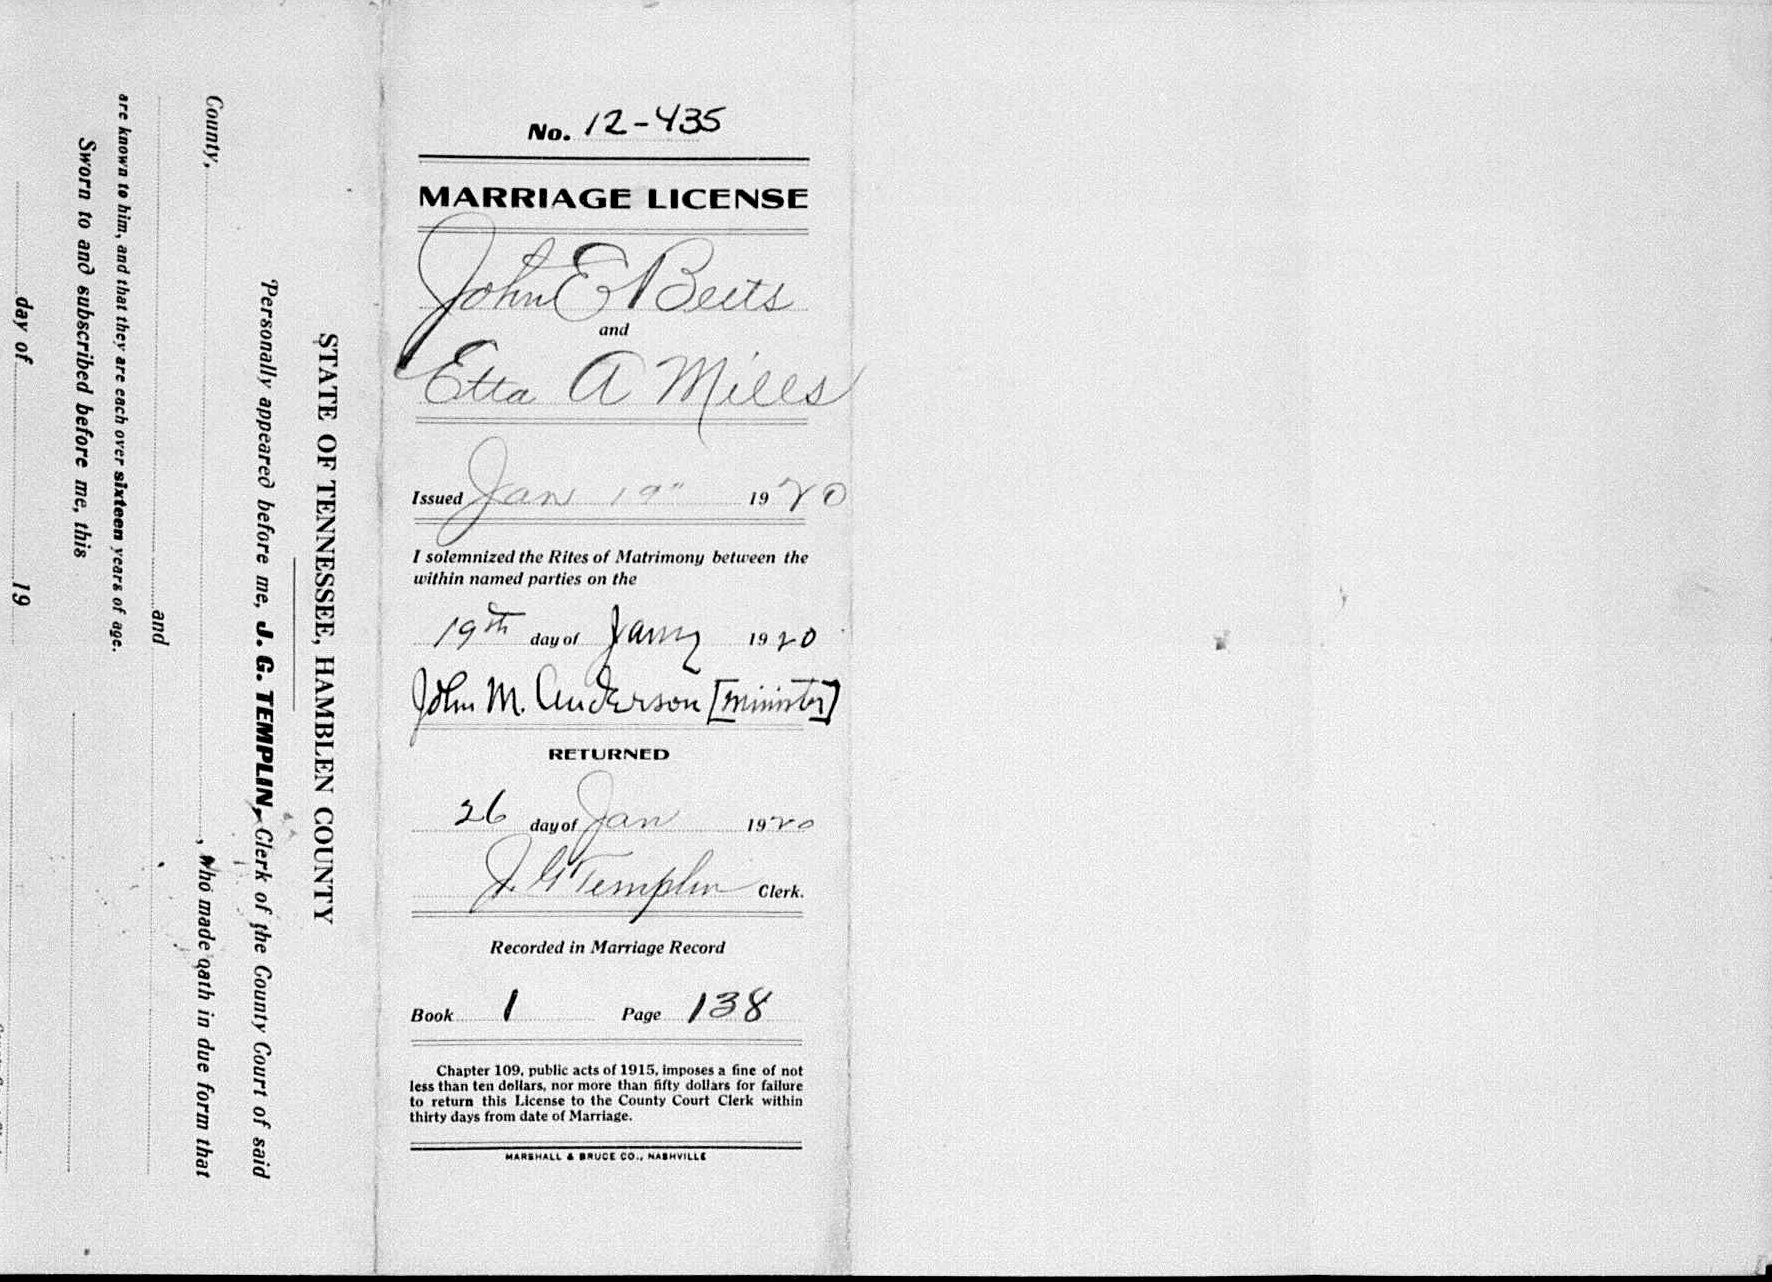 No. 12-435
MARRIAGE LICENSE
John E Beets
and
Etta A Mills
Issued Jan 19" 1920
I solemnized the Rites of Matrimony between the
within named parties on the
19th day of Jany 1920
John M. Anderson [minister]
RETURNED
26 day of Jan 1920
J. G Templin Clerk.
Recorded in Marriage Record
Book 1 Page 138
Chapter 109, public acts of 1915, imposes a fine of not
less than ten dollars, nor more than fifty dollars for failure
to return this License to the County Court Clerk within
thirty days from date of Marriage.
MARSHALL & BRUCE CO., NASHVILLE
STATE OF TENNESSEE, HAMBLEN COUNTY
Personally appeared before me, J. G. TEMPLIN, Clerk of the County Court of said
County, , who made oath in due form that
and
are known to him, and that they are each over sixteen years of age.
Sworn to and subscribed before me, this
day of 19